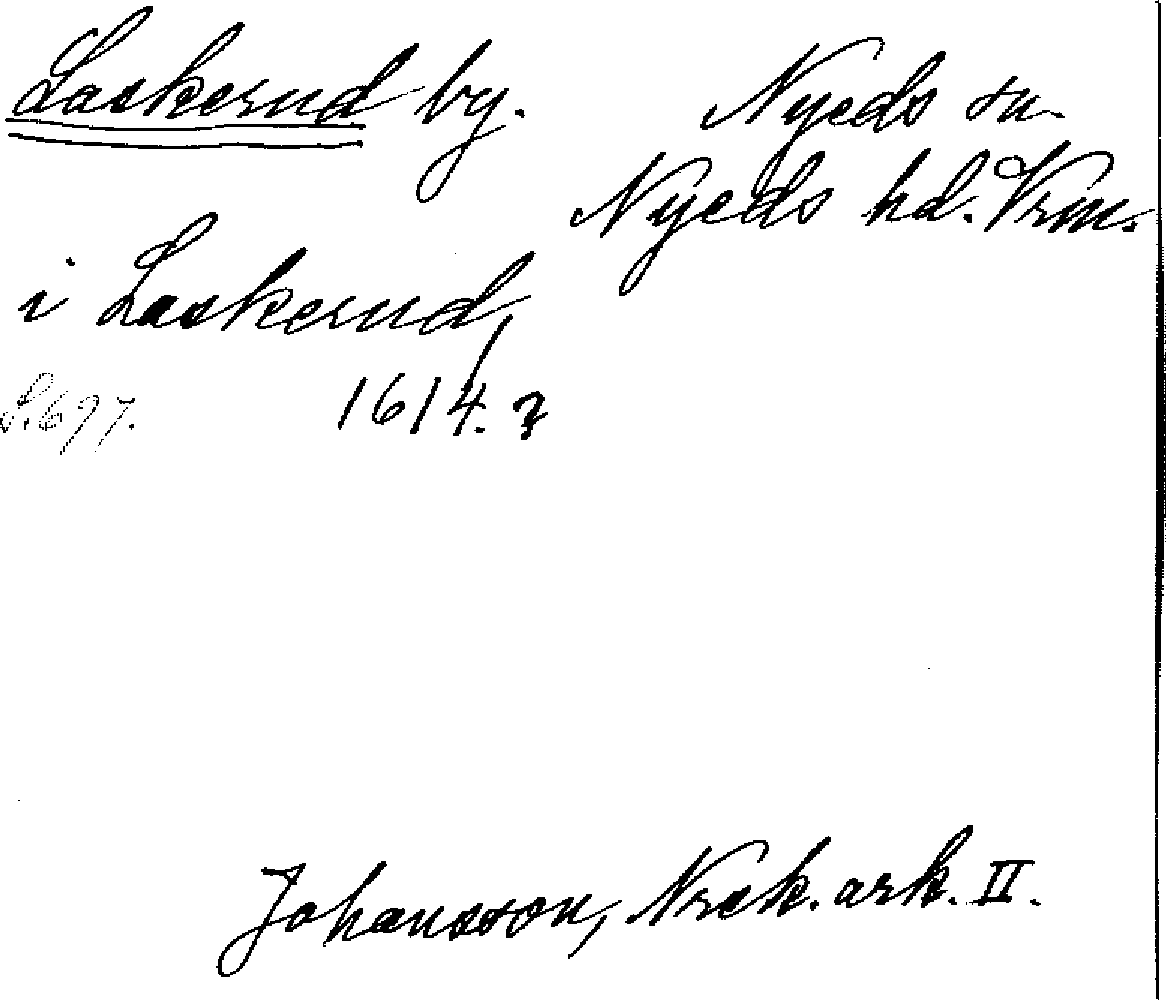 Laskerud by. Nyeds sn.
Nyeds hd. Vrm.
i Laskerud,
S. 697. 1614.
Johansson, Nrck. ark. II.